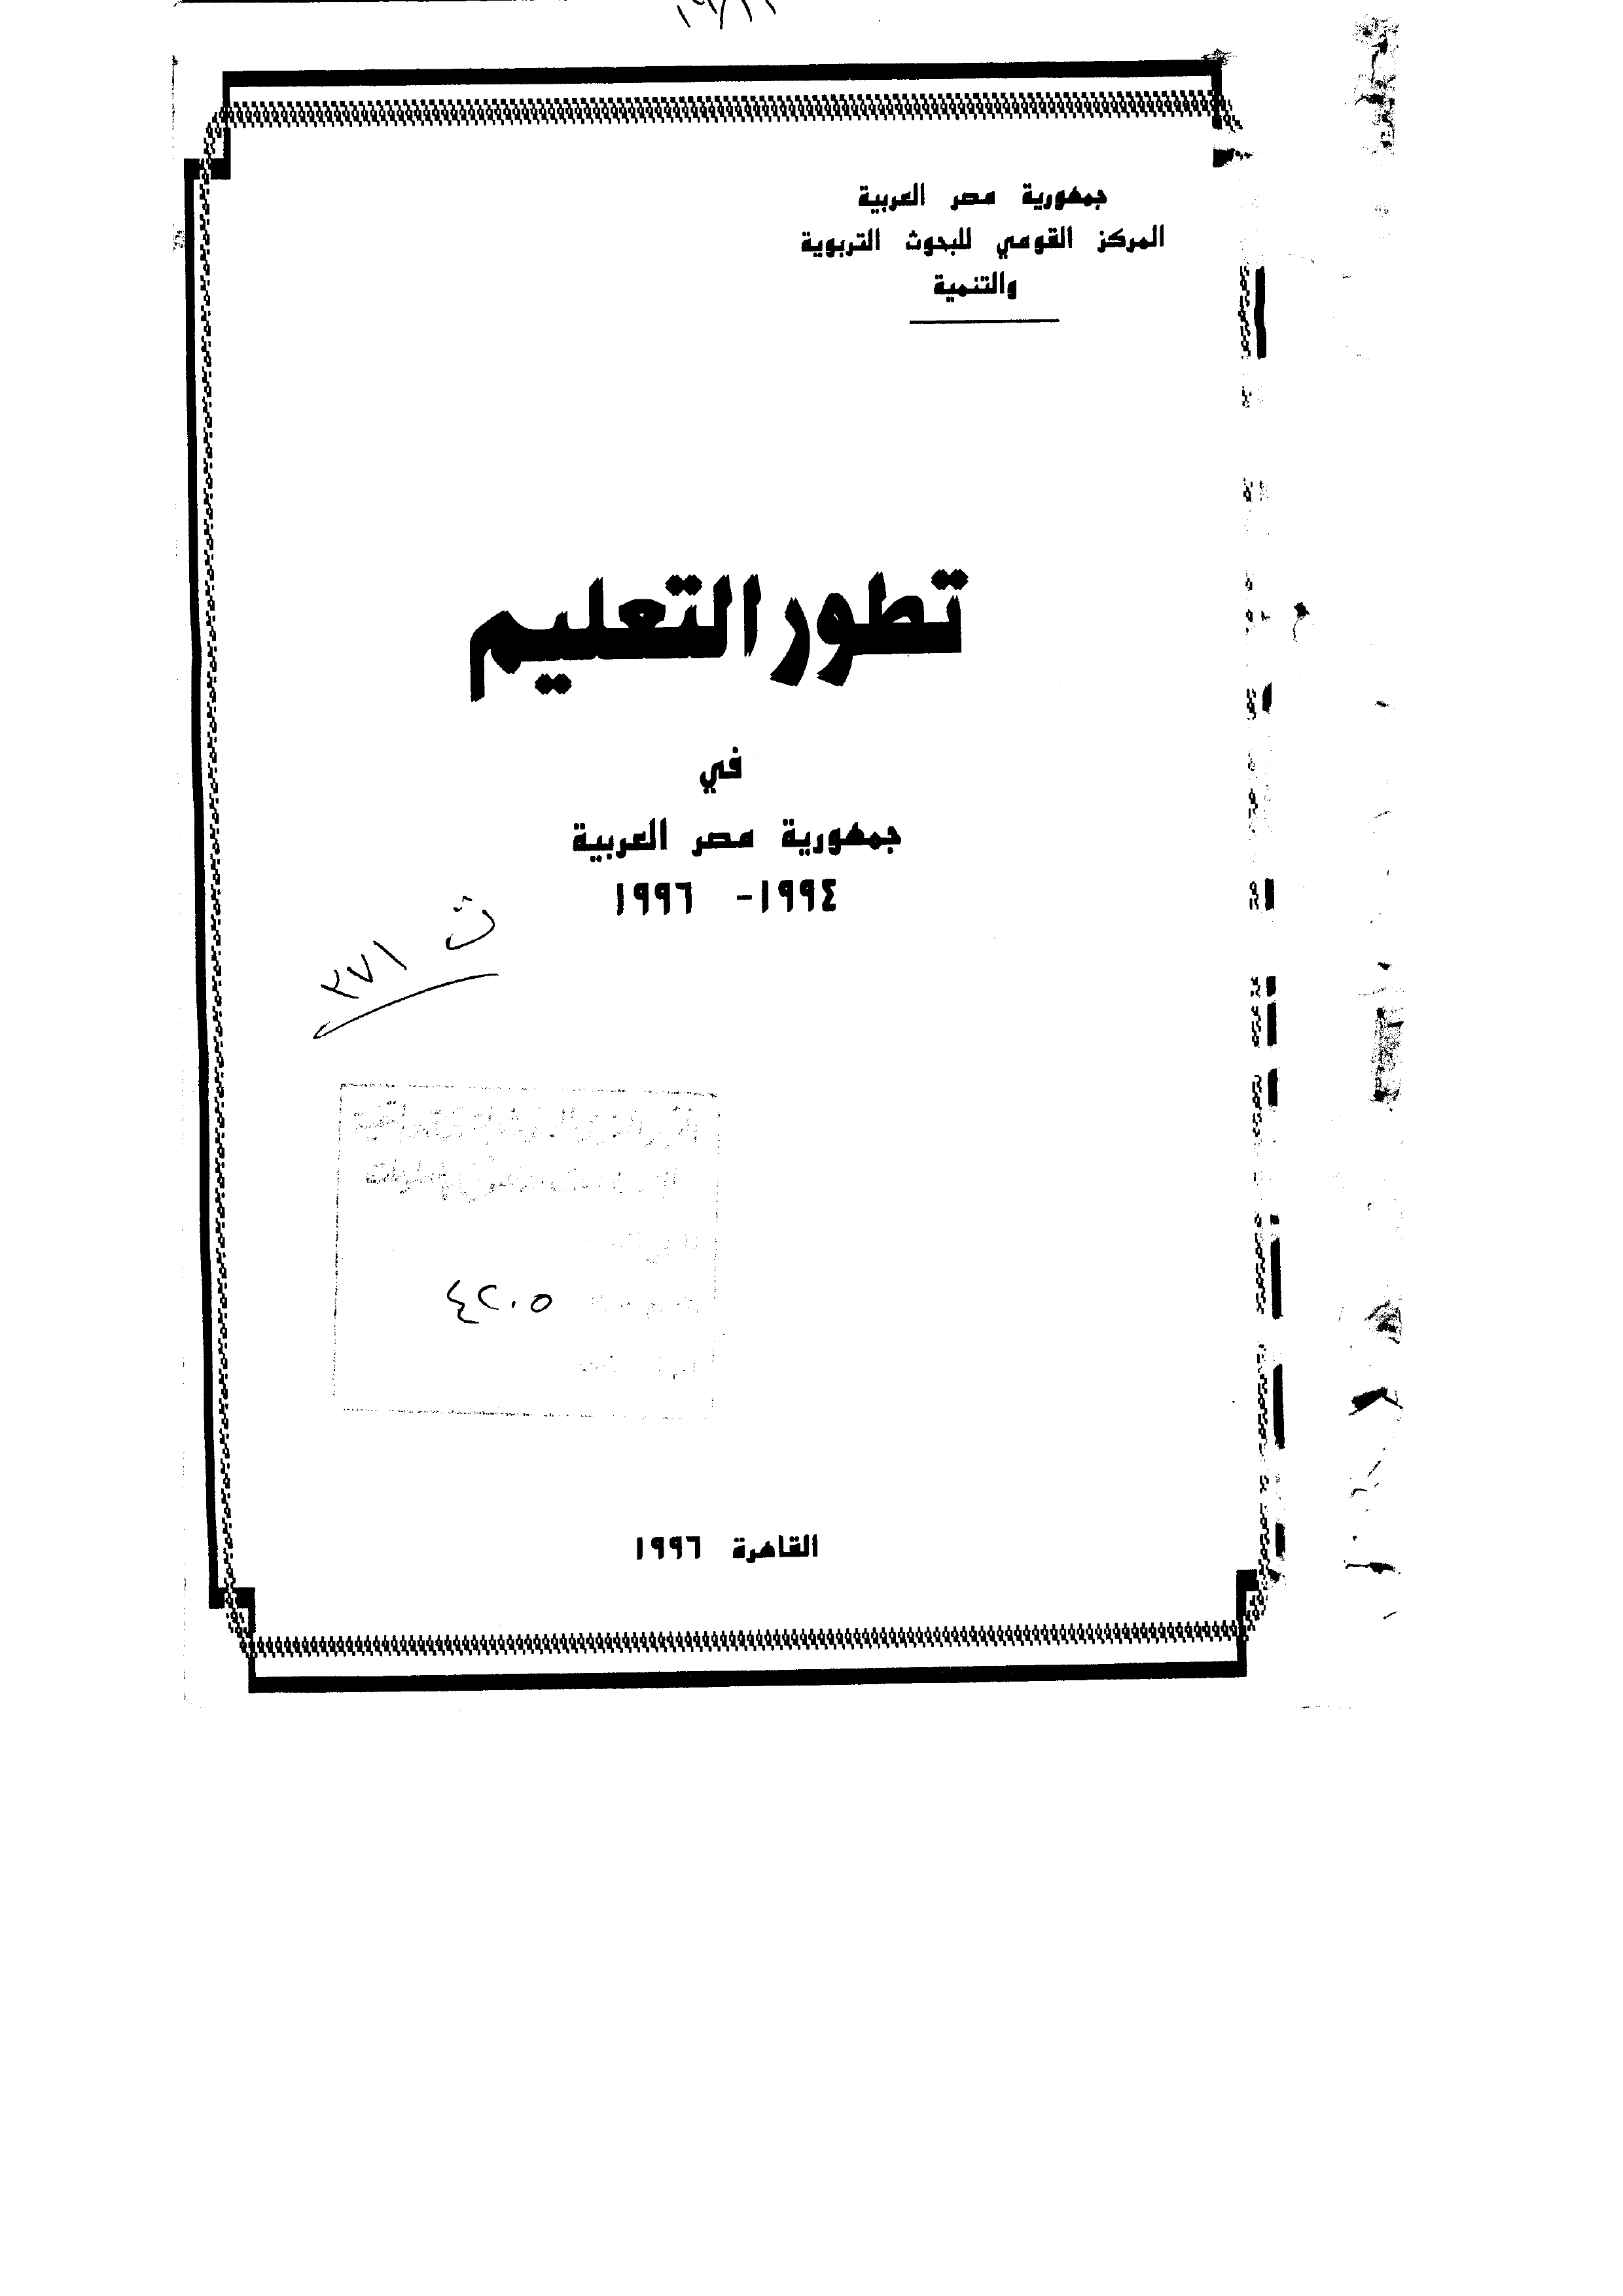 جمهورية مصر العربية
المركز القومي للبحوث التربوية
والتنمية
تطور التعليم
في
جمهورية مصر العربية
١٩٩٤- ١٩٩٦
ت ٣٧١
٤٢٠٥
القاهرة ١٩٩٦